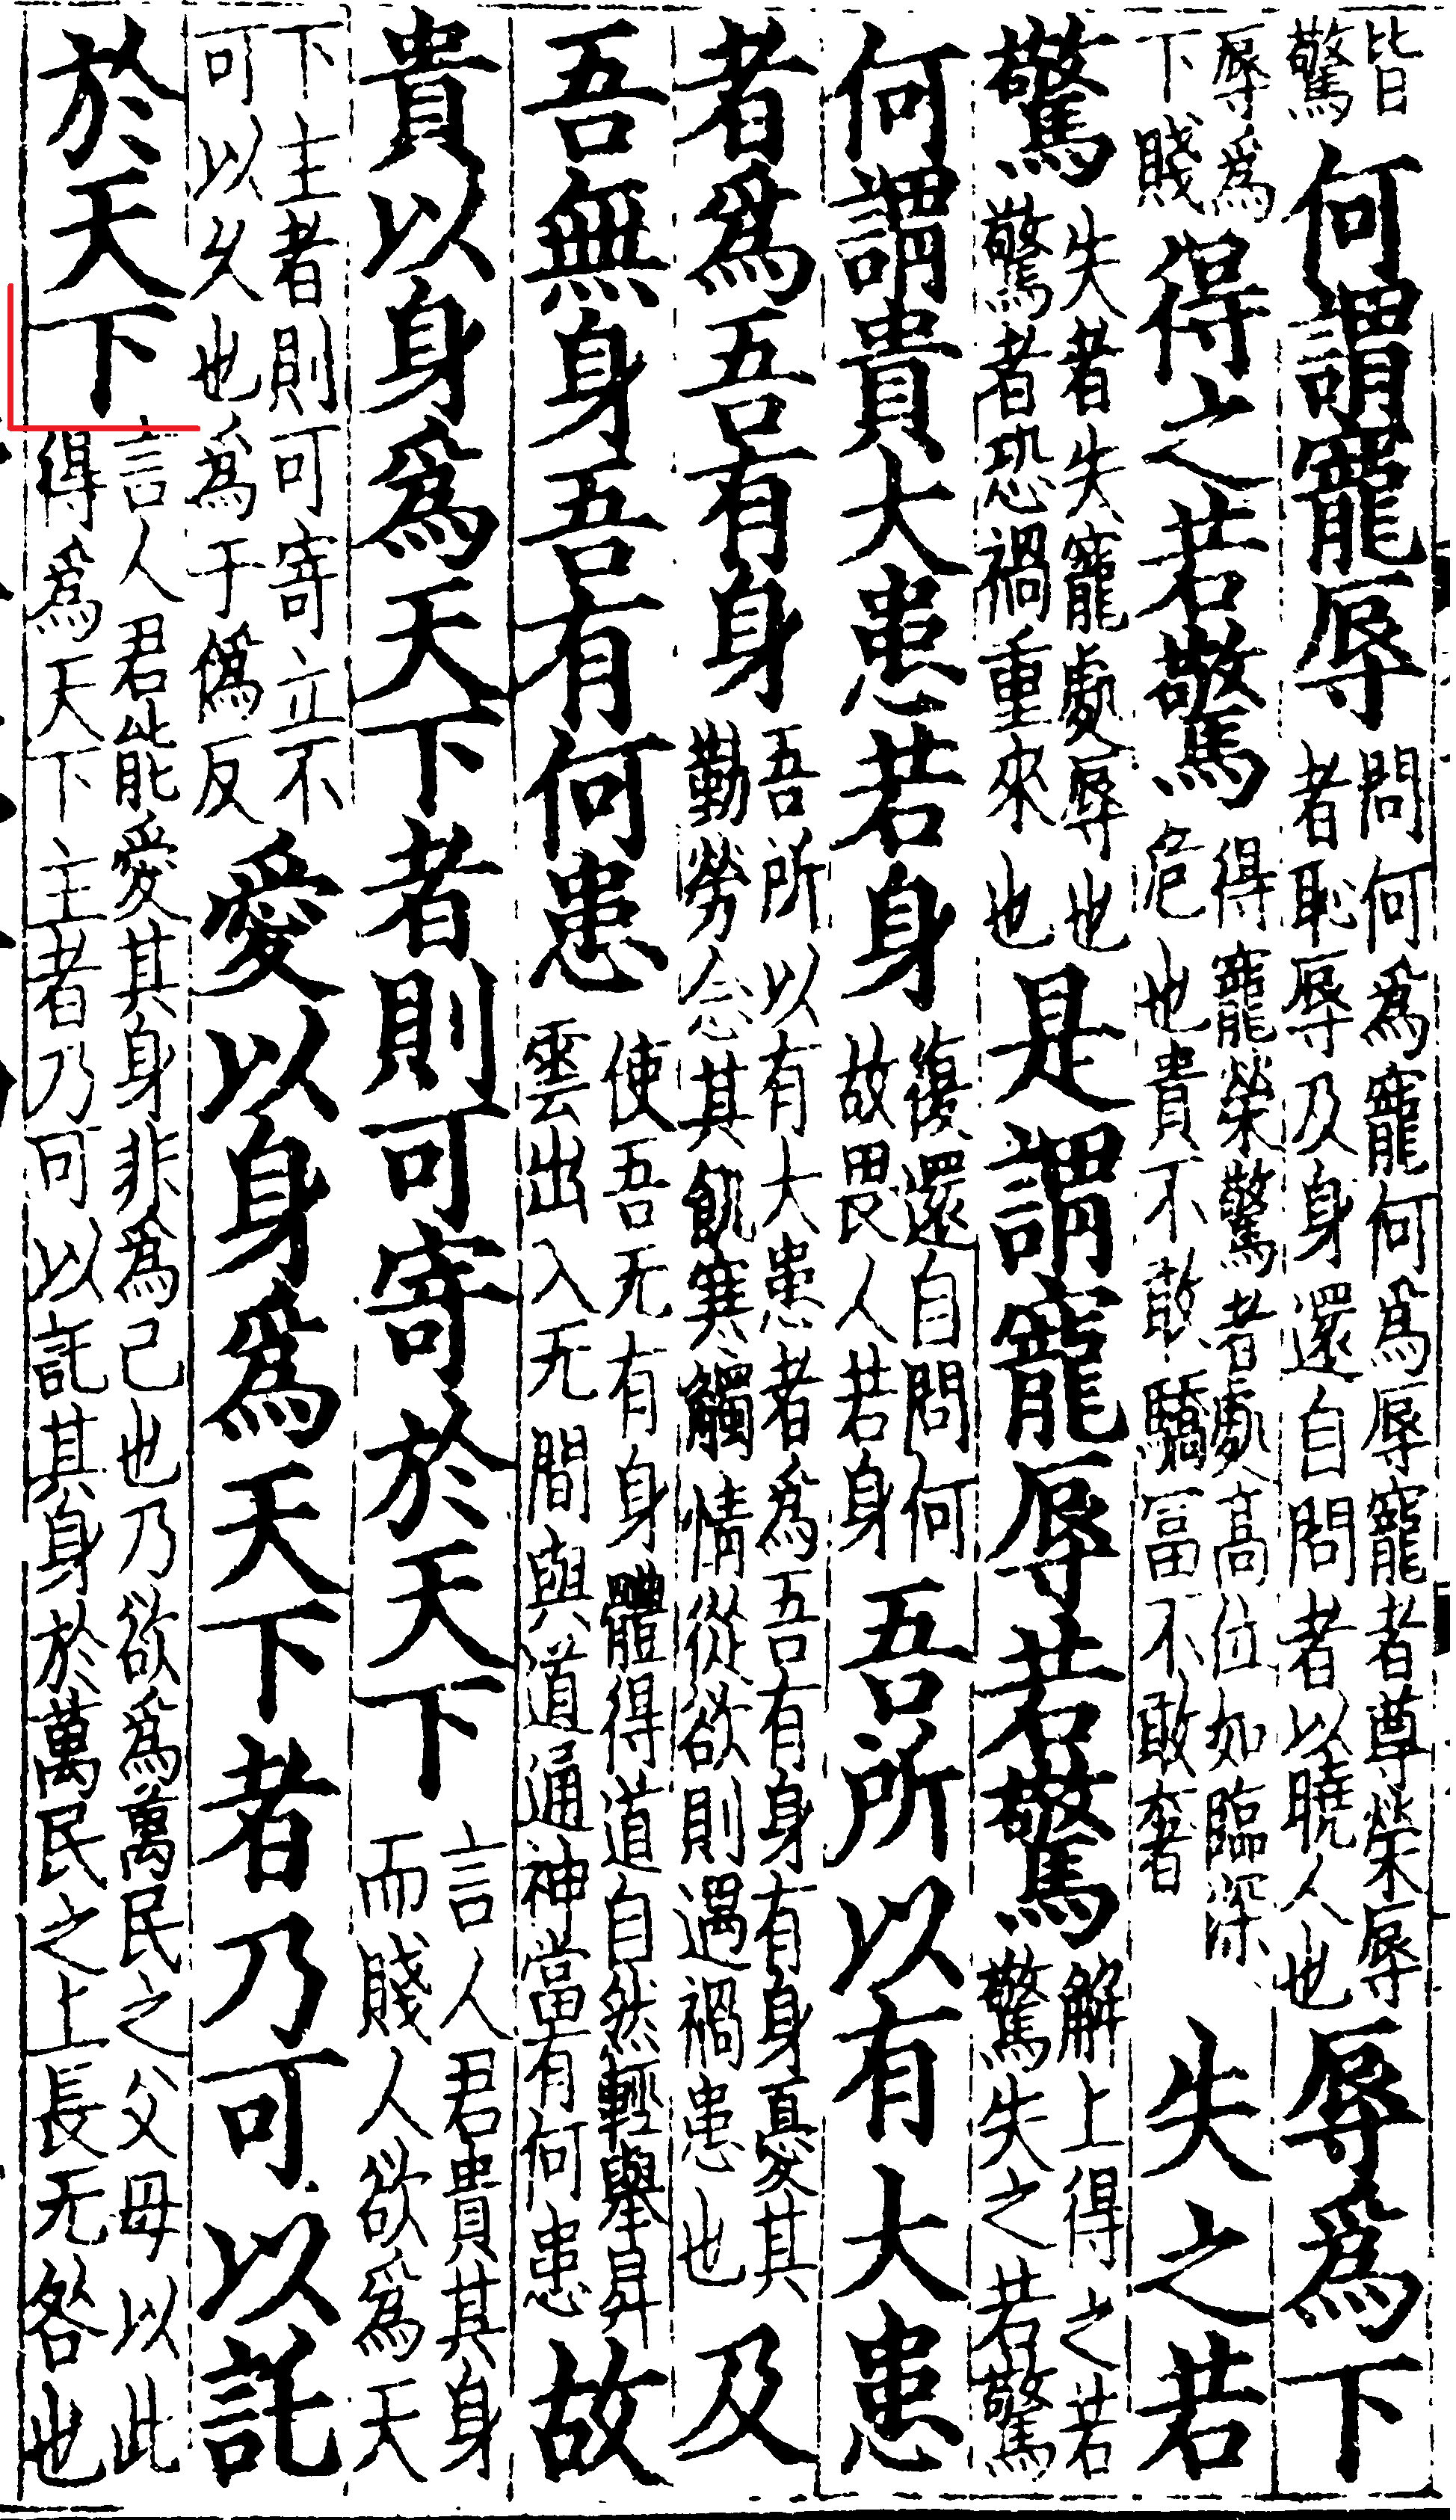 皆驚何謂寵辱問何爲寵何爲辱寵者尊榮辱者恥辱及身還自問者以曉人也辱爲下
辱爲下賤得之若驚得寵榮驚者處高位如臨深危也貴不敢驕富不敢奢失之若
驚失者失寵處辱也驚者恐禍重來也是謂寵辱若驚解上得之若驚失之若驚
何謂貴大患若身復還自問何故畏人若身吾所以有大患
者爲吾有身吾所以有大患者爲吾有身有身憂其勤勞念其飢寒觸情從欲則遇禍患也及
吾無身吾有何患使吾无有身體得道自然輕舉昇雲出入无間與道通神當有何患故
貴以身爲天下者則可寄於天下言人君貴其身而賤人欲爲天
下主者則可寄立不可以久也爲于僞反愛以身爲天下者乃可以託
於天下言人君能愛其身非爲己也乃欲爲萬民之父母以此得爲天下主者乃可以託其身於萬民之上長无咎也